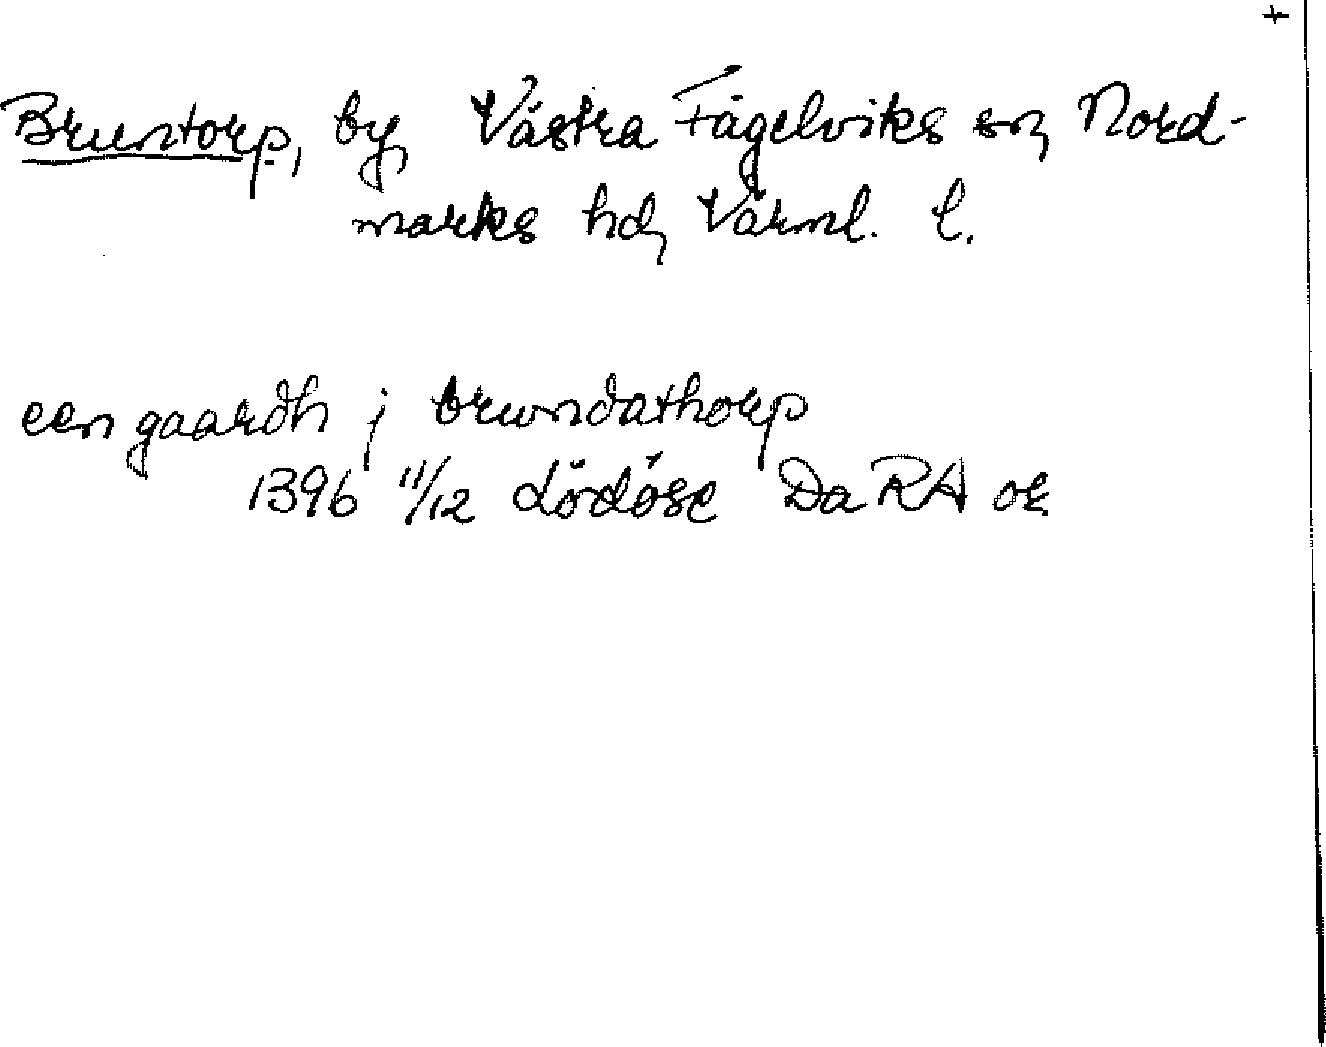 +
Bruntorp, by, Västra Fågelviks sn, Nord-
marks hd, Värml. l.
een gaardh j brundathorp
1396 11/12 Lödöse DaRA or.